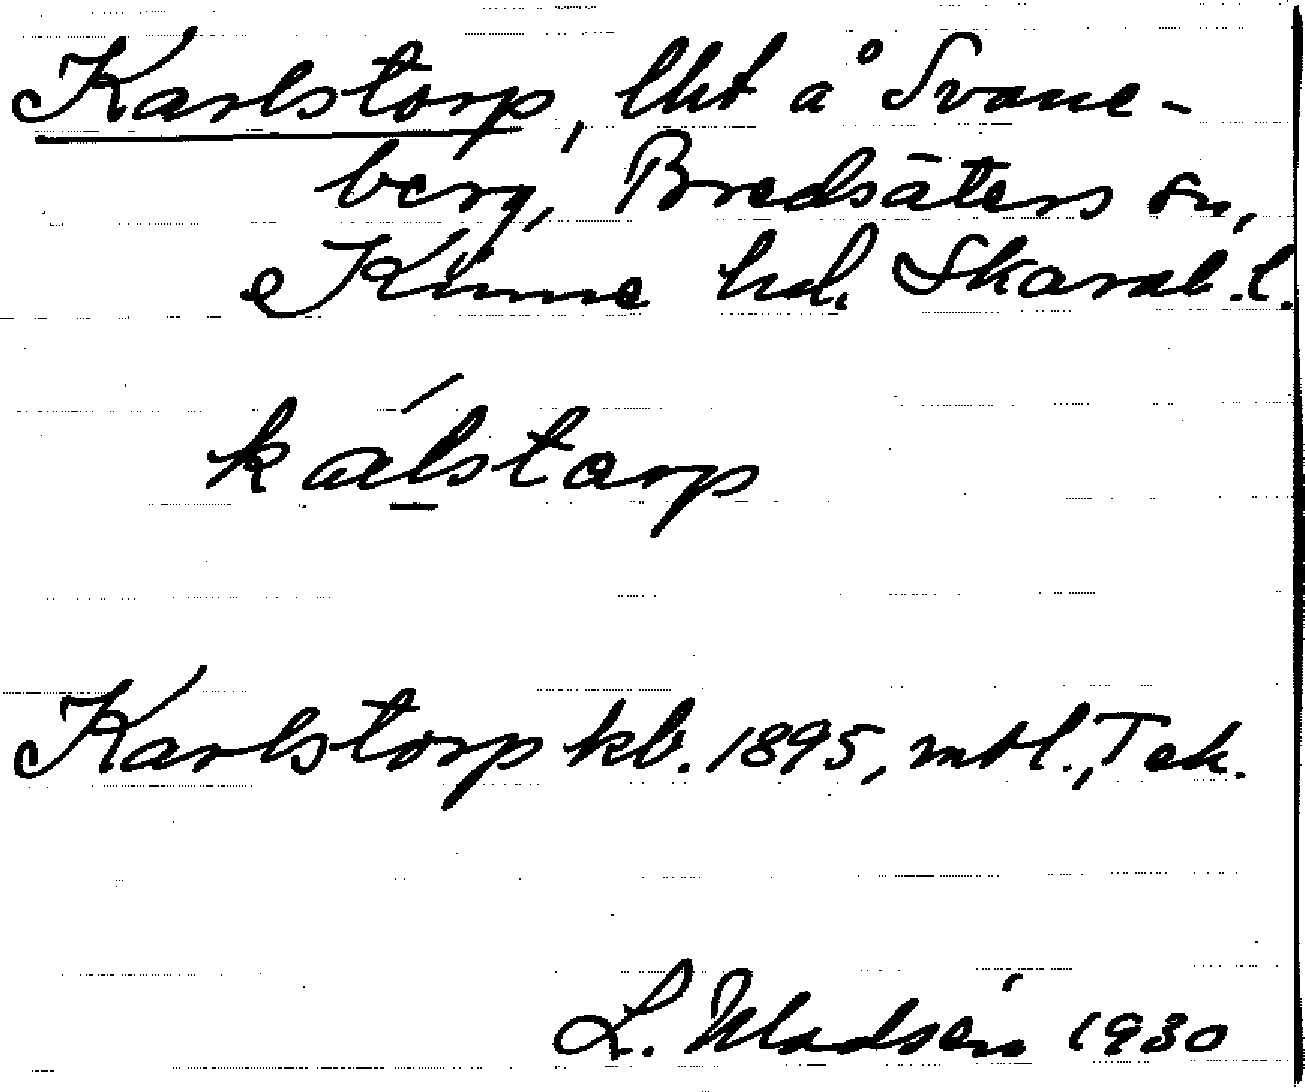 Karlstorp, lht å Svane-
berg, Bredsäters sn,
Kinne hd. Skarab. l.
kálstarp
Karlstorp kb. 1895, mtl., Tek.
L. Madsén 1930